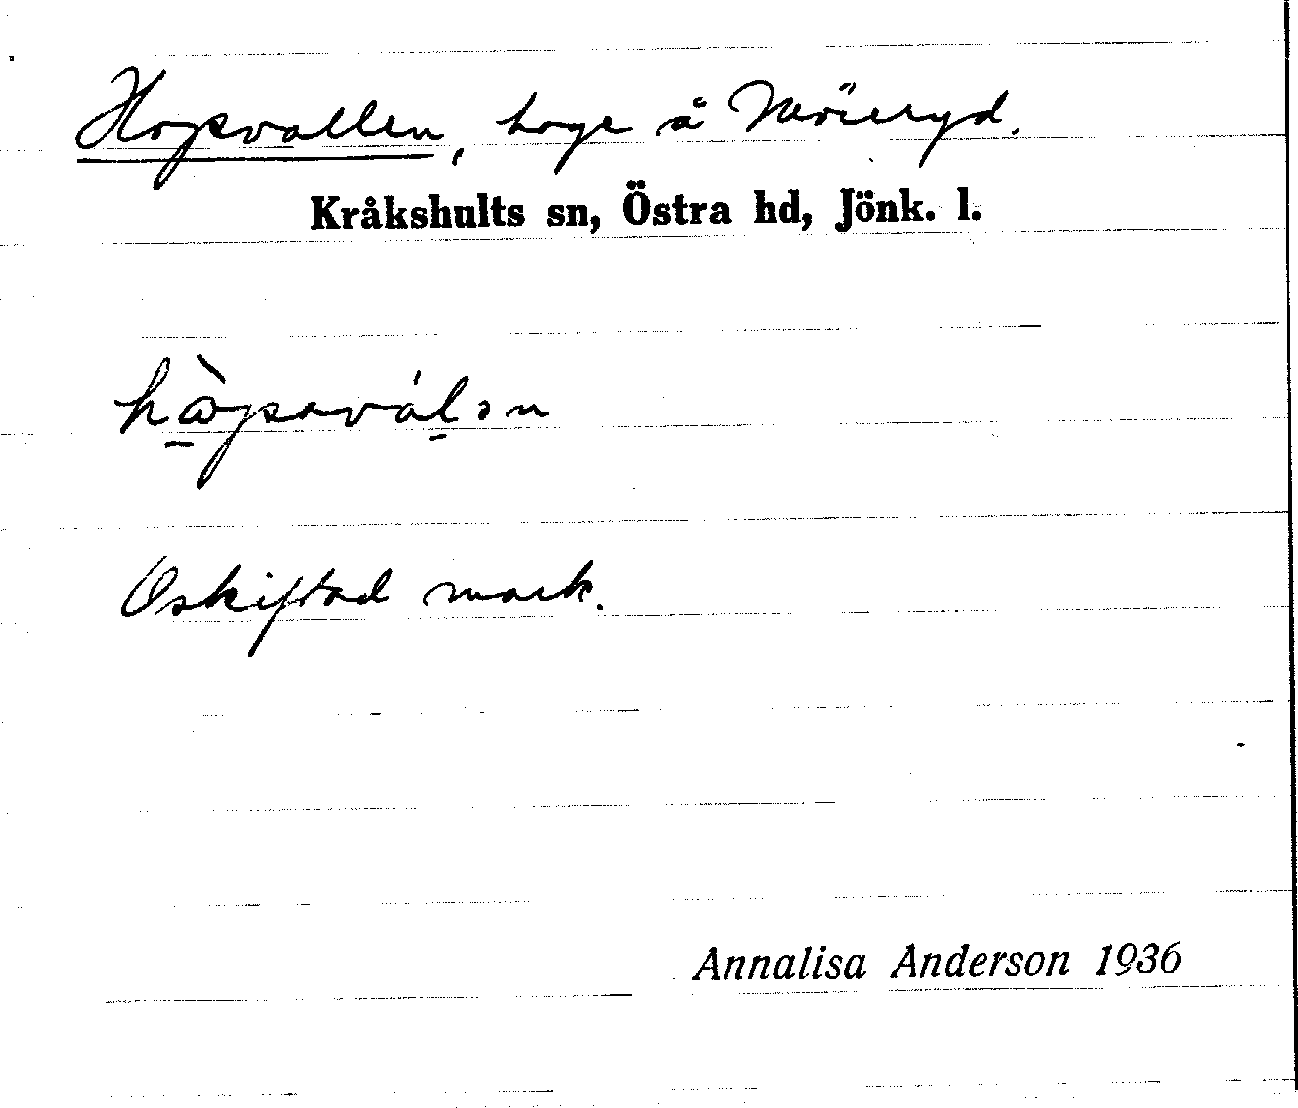 Hopsvallen, hage å Möcryd.
Kråkshults sn, Östra hd, Jönk. l.
Oskiftad mark.
Annalisa Anderson 1936